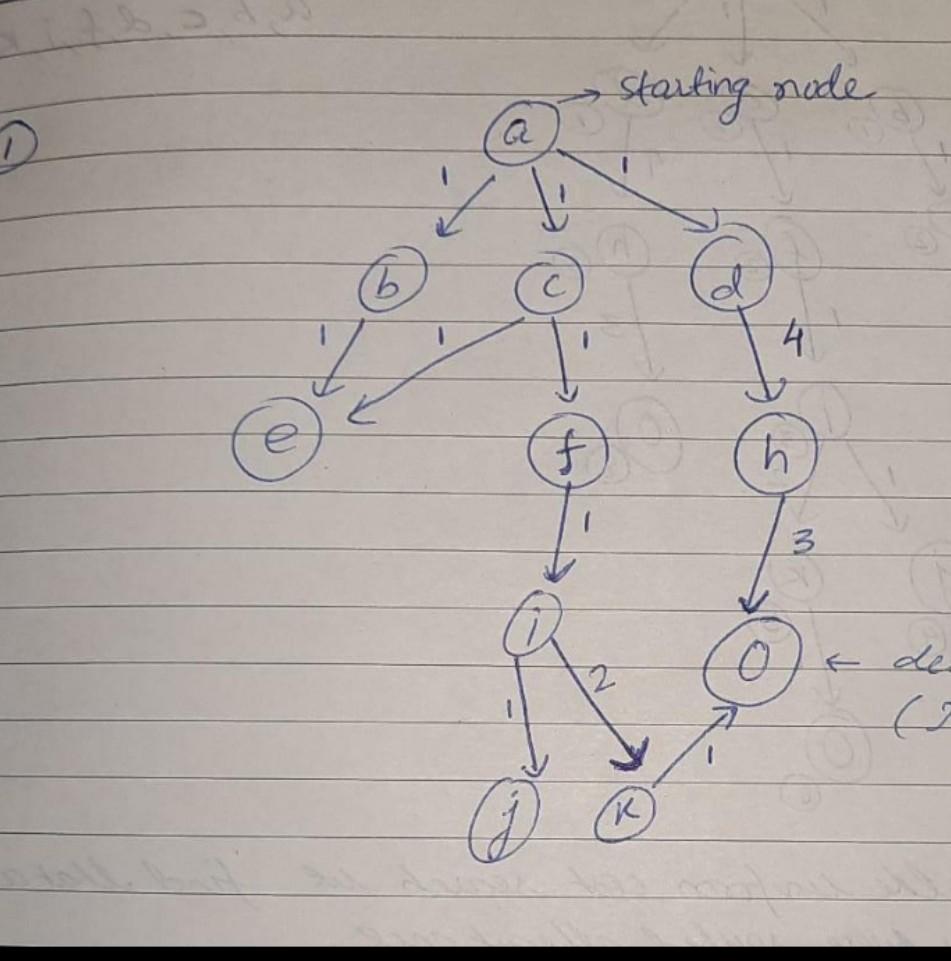 a → starting node
1
1 1 1
b c d
1 1 1 4
e f h
1 3
i O ←
1 2 1
j k